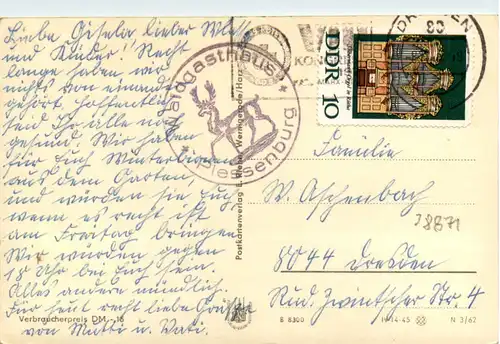 Liebe Gisela lieber Wolf
und Kinder! Recht
lange haben wir
nichts von einander
gehört, hoffentlich
seid Ihr alle noch
gesund. Wir haben
für Euch Winterbirnen
aus dem Garten,
und würden sie Euch
wenn es recht ist
am Freitag bringen.
Wir würden gegen
18 Uhr bei Euch sein.
Alles andere mündlich.
Für heut recht liebe Grüße
von Mutti u. Vati.
Verbraucherpreis DM -,16
Waldgasthaus
Plessenburg
Wernigerode/Harz
Postkartenverlag
DDR 10
DRESDEN
Familie
W. Aschenbach
8044 Dresden
Rud. Zwintscher Str. 4
J8B71
B 8300
IV-14-45
N 3/62